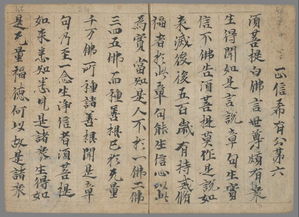 正信希有分第六
須菩提白佛言世尊頗有衆
生得聞如是言說章句生實
信不佛告須菩提莫作是說如
来滅後後五百歲有持戒脩
福者於此章句能生信心以此
為實當知是人不於一佛二佛
三四五佛而種善根已於无量
千万佛所種諸善根聞是章
句乃至一念生淨信者須菩提
如来悉知悉見是諸衆生得如
是无量福德何以故是諸衆